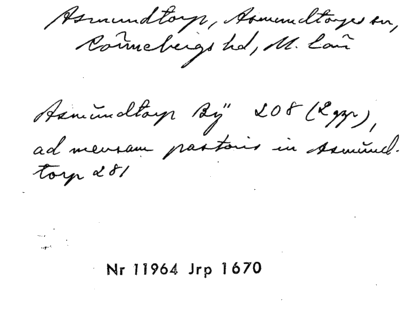 Asmundtorp, Asmundtorps sn,
Rönnebergs hd, M. län
Asmŭndtorp Bÿ 208 (2 ggr),
ad mensam pastoris in Asmŭnd-
torp 281
Nr 11964 Jrp 1670